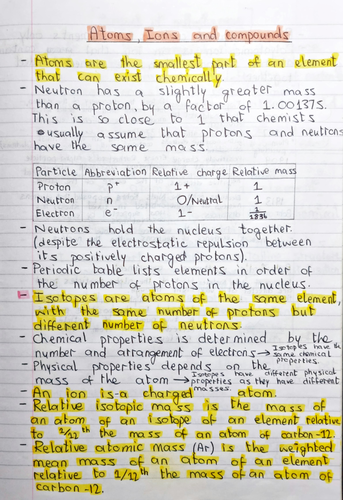 Atoms, Ions and compounds
- Atoms are the smallest part of an element
that can exist chemically.
- Neutron has a slightly greater mass
than a proton, by a factor of 1.001375.
This is so close to 1 that chemists
usually assume that protons and neutrons
have the same mass.
Particle Abbreviation Relative charge Relative mass
Proton p+ 1+ 1
Neutron n 0/Neutral 1
Electron e- 1- 1/1836
- Neutrons hold the nucleus together
(despite the electrostatic repulsion between
its positively charged protons).
- Periodic table lists elements in order of
the number of protons in the nucleus.
- Isotopes are atoms of the same element,
with the same number of protons but
different number of neutrons.
- Chemical properties is determined by the
number and arrangement of electrons → Isotopes have the same chemical properties.
- Physical properties depends on the
mass of the atom → Isotopes have different physical properties as they have different masses.
- An ion is a charged atom.
- Relative isotopic mass is the mass of
an atom of an isotope of an element relative
to 1/12th the mass of an atom of carbon-12.
- Relative atomic mass (Ar) is the weighted
mean mass of an atom of an element
relative to 1/12th the mass of an atom of
carbon-12.